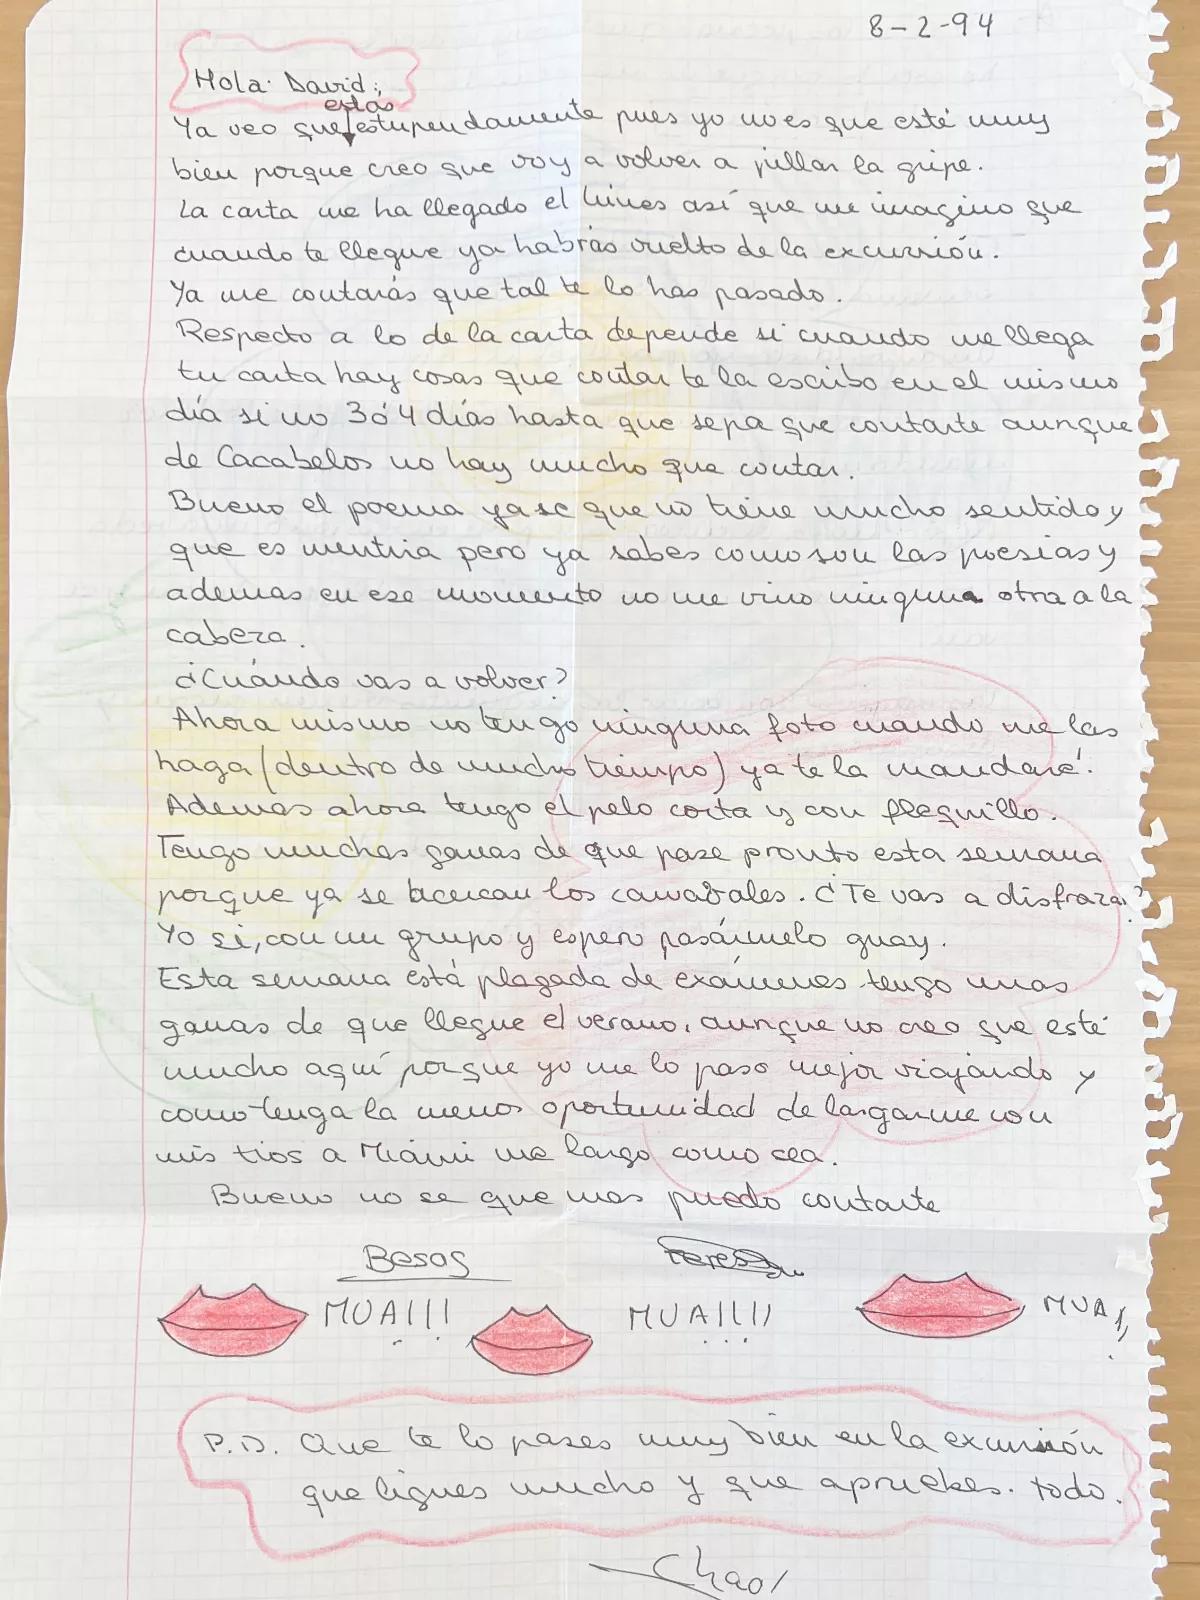 8-2-94
Hola: David:
estás
Ya veo que estupendamente pues yo no es que esté muy
bien porque creo que voy a volver a pillar la gripe.
La carta me ha llegado el lunes así que me imagino que
cuando te llegue ya habrás vuelto de la excursión.
Ya me contarás que tal te lo has pasado.
Respecto a lo de la carta depende si cuando me llega
tu carta hay cosas que contar te la escribo en el mismo
día si no 3 ó 4 días hasta que sepa que contarte aunque
de Cacabelos no hay mucho que contar.
Bueno el poema ya se que no tiene mucho sentido y
que es mentira pero ya sabes como son las poesias y
ademas en ese momento no me vino ninguna otra a la
cabeza.
¿Cuándo vas a volver?
Ahora mismo no tengo ninguna foto cuando me las
haga (dentro de mucho tiempo) ya te la mandaré.
Ademas ahora tengo el pelo corta y con flequillo.
Tengo muchas ganas de que pase pronto esta semana
porque ya se acercan los carnavales. ¿Te vas a disfrazar?
Yo si, con un grupo y espero pasármelo guay.
Esta semana está plagada de exámenes tengo unas
ganas de que llegue el verano, aunque no creo que esté
mucho aquí porque yo me lo paso mejor viajando y
como tenga la menos oportunidad de largarme con
mis tios a Miami me largo como sea.
Bueno no se que mas puedo contarte
Besos Teresa
MUA!!! MUA!!!! MUA!!
P.D. Que te lo pases muy bien en la excursión
que ligues mucho y que apruebes. todo.
Chao!